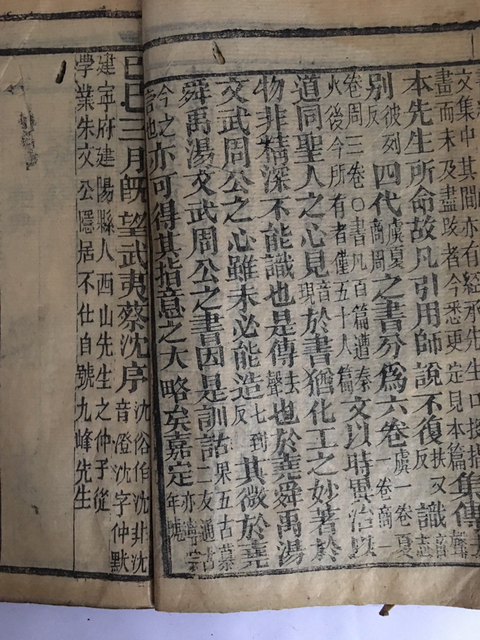 文集中其間亦有經承先生口授指畫而未及盡改者今悉更定見本篇集傳
本先生所命故凡引用師說不復扶又反識音志
別彼列反四代虞夏商周之書分爲六卷虞一卷夏一卷商一
卷周三卷○書凡百篇遭秦火後今所有者僅五十八篇文以時異治以
道同聖人之心見音現於書猶化工之妙著於
物非精深不能識也是傳去聲也於堯舜禹湯
文武周公之心雖未必能造七到反其微於堯
舜禹湯文武周公之書因是訓詁果五古慕二反通古
今之言也亦可得其指意之大略矣嘉定亦寧宗年號
己巳三月既望武夷蔡沈序沈俗作沈非沈音澄沈字仲默
建寧府建陽縣人西山先生之仲子從學業朱文公隱居不仕自號九峰先生